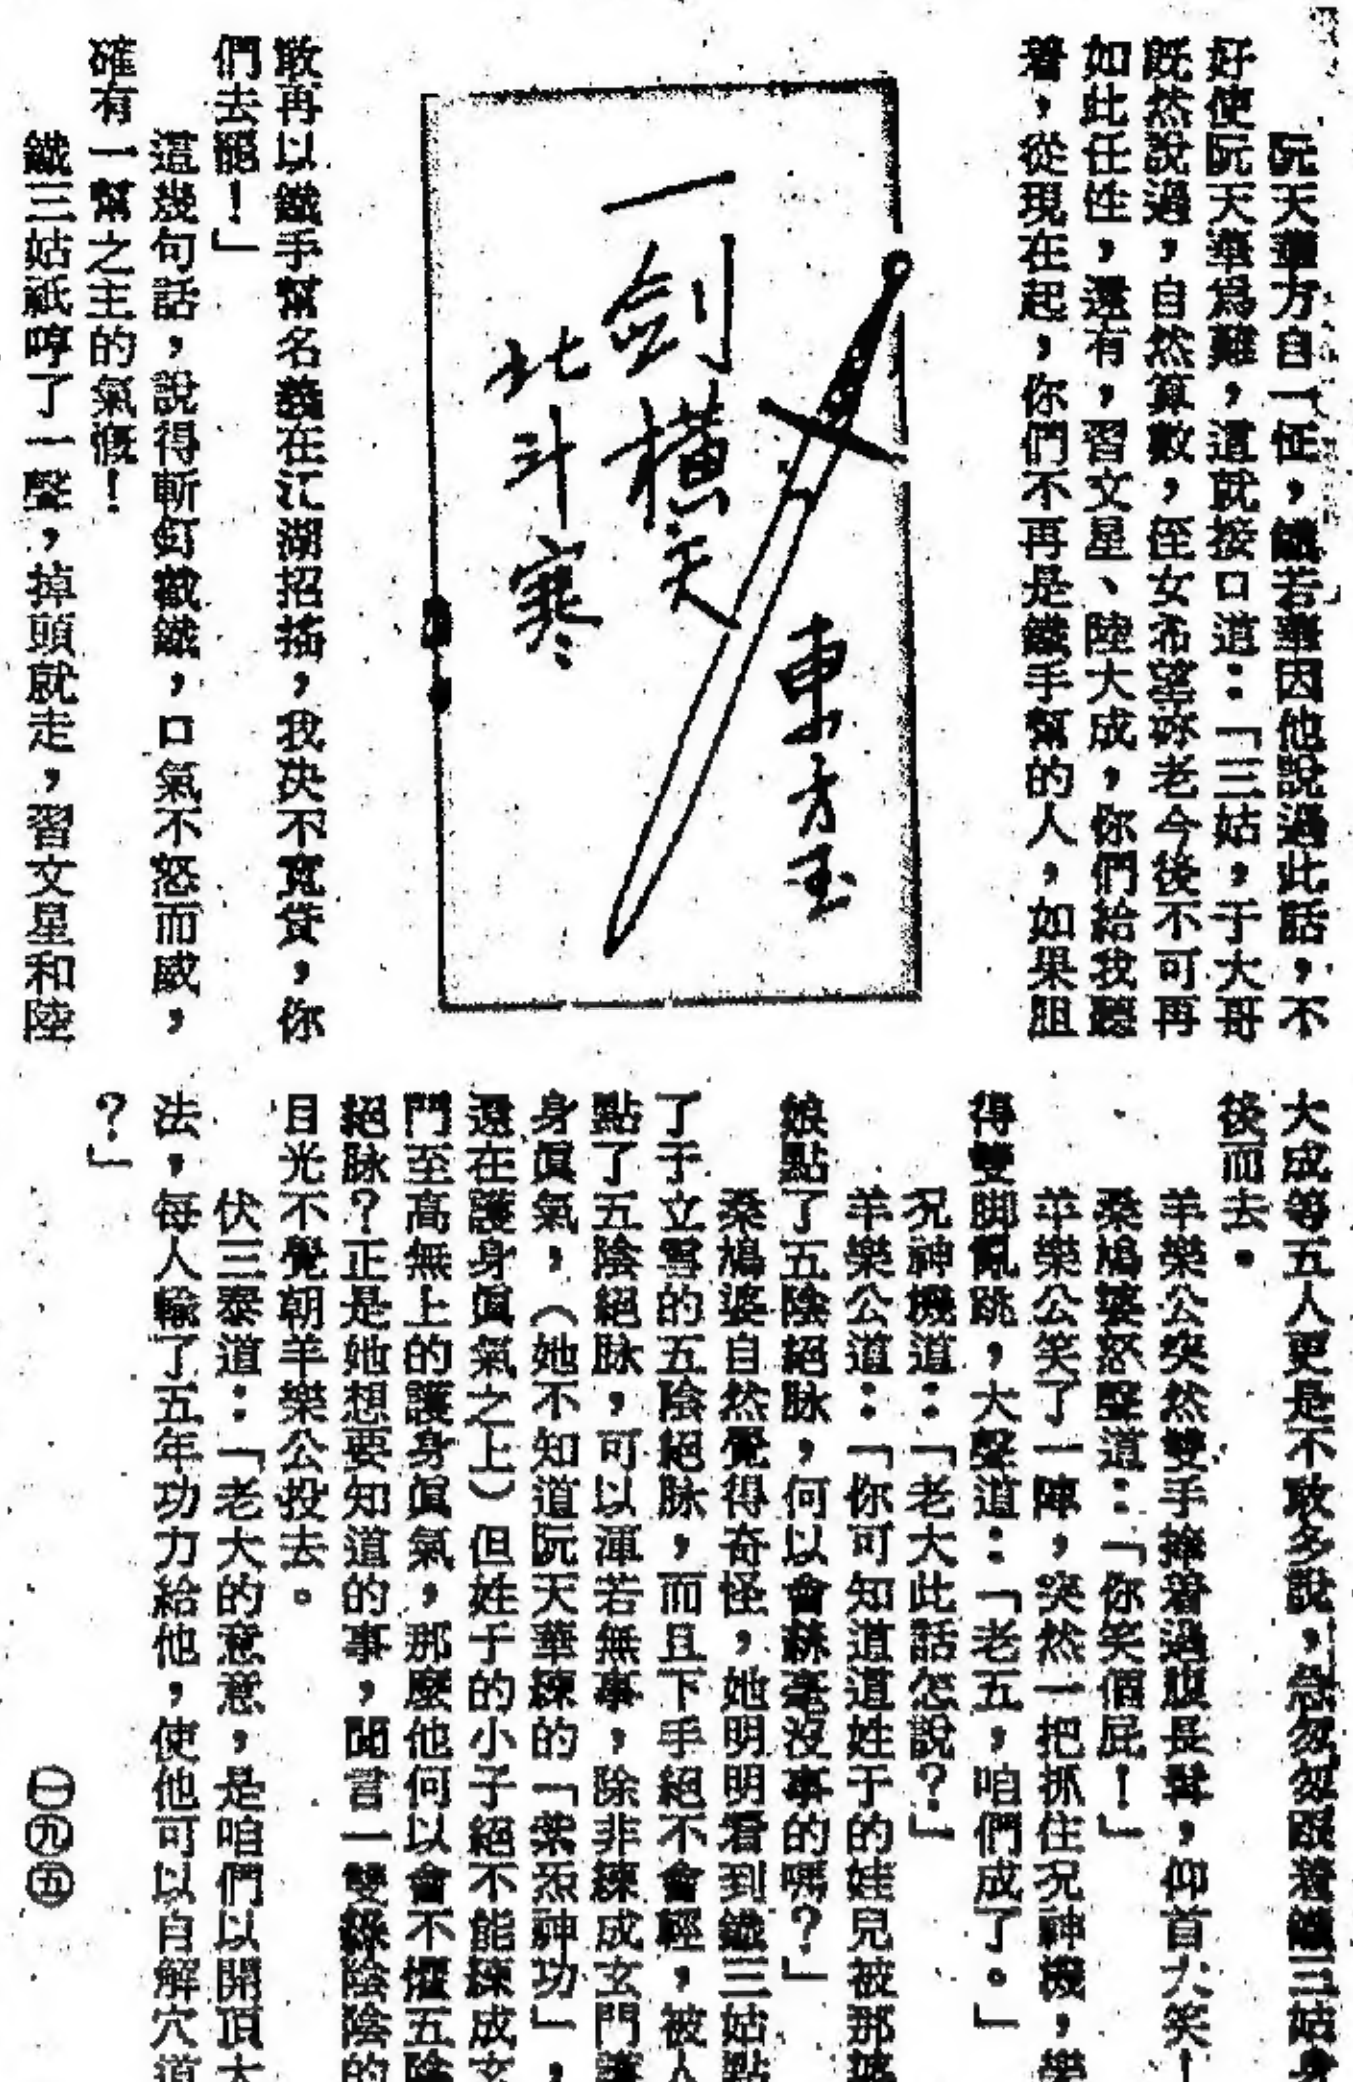 阮天華方自一怔，鐵若華因他說過此話，不
好使阮天華為難，這就接口道：「三姑，于大哥
既然說過，自然算數，侄女希望妳老今後不可再
如此任性，還有，習文星、陸大成，你們給我聽
着，從現在起，你們不再是鐵手幫的人，如果胆
東方玉
一劍橫天
北斗寒
敢再以鐵手幫名義在江湖招搖，我決不寬貸，你
們去罷！」
這幾句話，說得斬釘截鐵，口氣不怒而威，
確有一幫之主的氣慨！
鐵三姑祇哼了一聲，掉頭就走，習文星和陸
大成等五人更是不敢多說，急匆匆跟着鐵三姑身
後而去。
羊樂公突然雙手捧着過腹長髯，仰首大笑！
桑鳩婆怒聲道：「你笑個屁！」
羊樂公笑了一陣，突然一把抓住況神機，樂
得雙脚亂跳，大聲道：「老五，咱們成了。」
況神機道：「老大此話怎說？」
羊樂公道：「你可知道道姓于的娃兒被那婆
娘點了五陰絕脉，何以會絲毫沒事的嗎？」
桑鳩婆自然覺得奇怪，她明明看到鐵三姑點
了于立雪的五陰絕脉，而且下手絕不會輕，被人
點了五陰絕脉，可以渾若無事，除非練成玄門護
身眞氣，（她不知道阮天華練的「紫炁神功」，
還在護身眞氣之上）但姓于的小子絕不能練成玄
門至高無上的護身眞氣，那麼他何以會不懼五陰
絕脉？正是她想要知道的事，聞言一雙綠陰陰的
目光不覺朝羊樂公投去。
伏三泰道：「老大的意意，是咱們以開頂大
法，每人輸了五年功力給他，使他可以自解穴道
？」
一九五